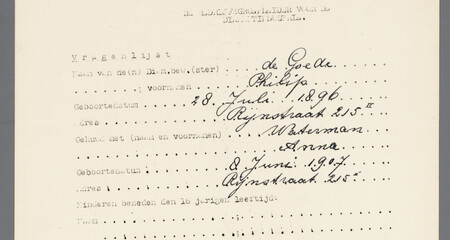 DE BEDRIJFSGELEIDER VAN DE
Vragenlijst
Naam van de(n) Diam.bew.(ster) . . . de Goede
; voornamen . . . Philip
Geboortedatum . . . 28 Juli 1896
Adres . . . Rijnstraat 215 II
Gehuwd met (naam en voornamen) . . . Waterman
Anna
Geboortedatum . . . 8 Juni 1907
Adres . . . Rijnstraat 215 II
Kinderen beneden den 16 jarigen leeftijd:
Naam